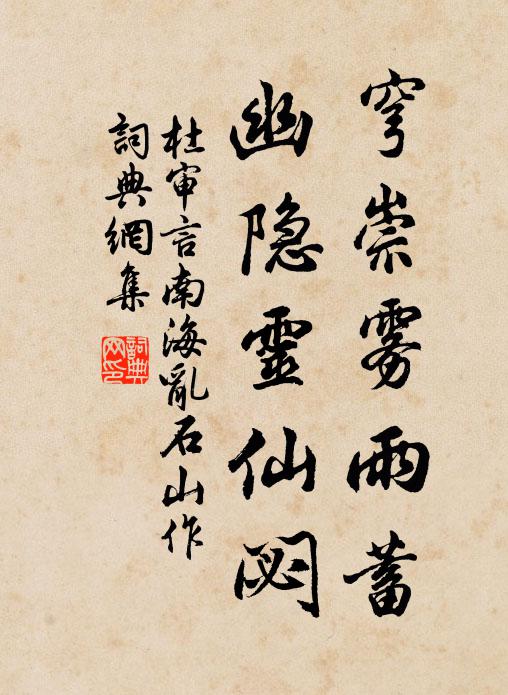 穹崇雾雨蓄
幽隐靈仙閟
杜审言南海亂石山作
詞典網集
詞典網印